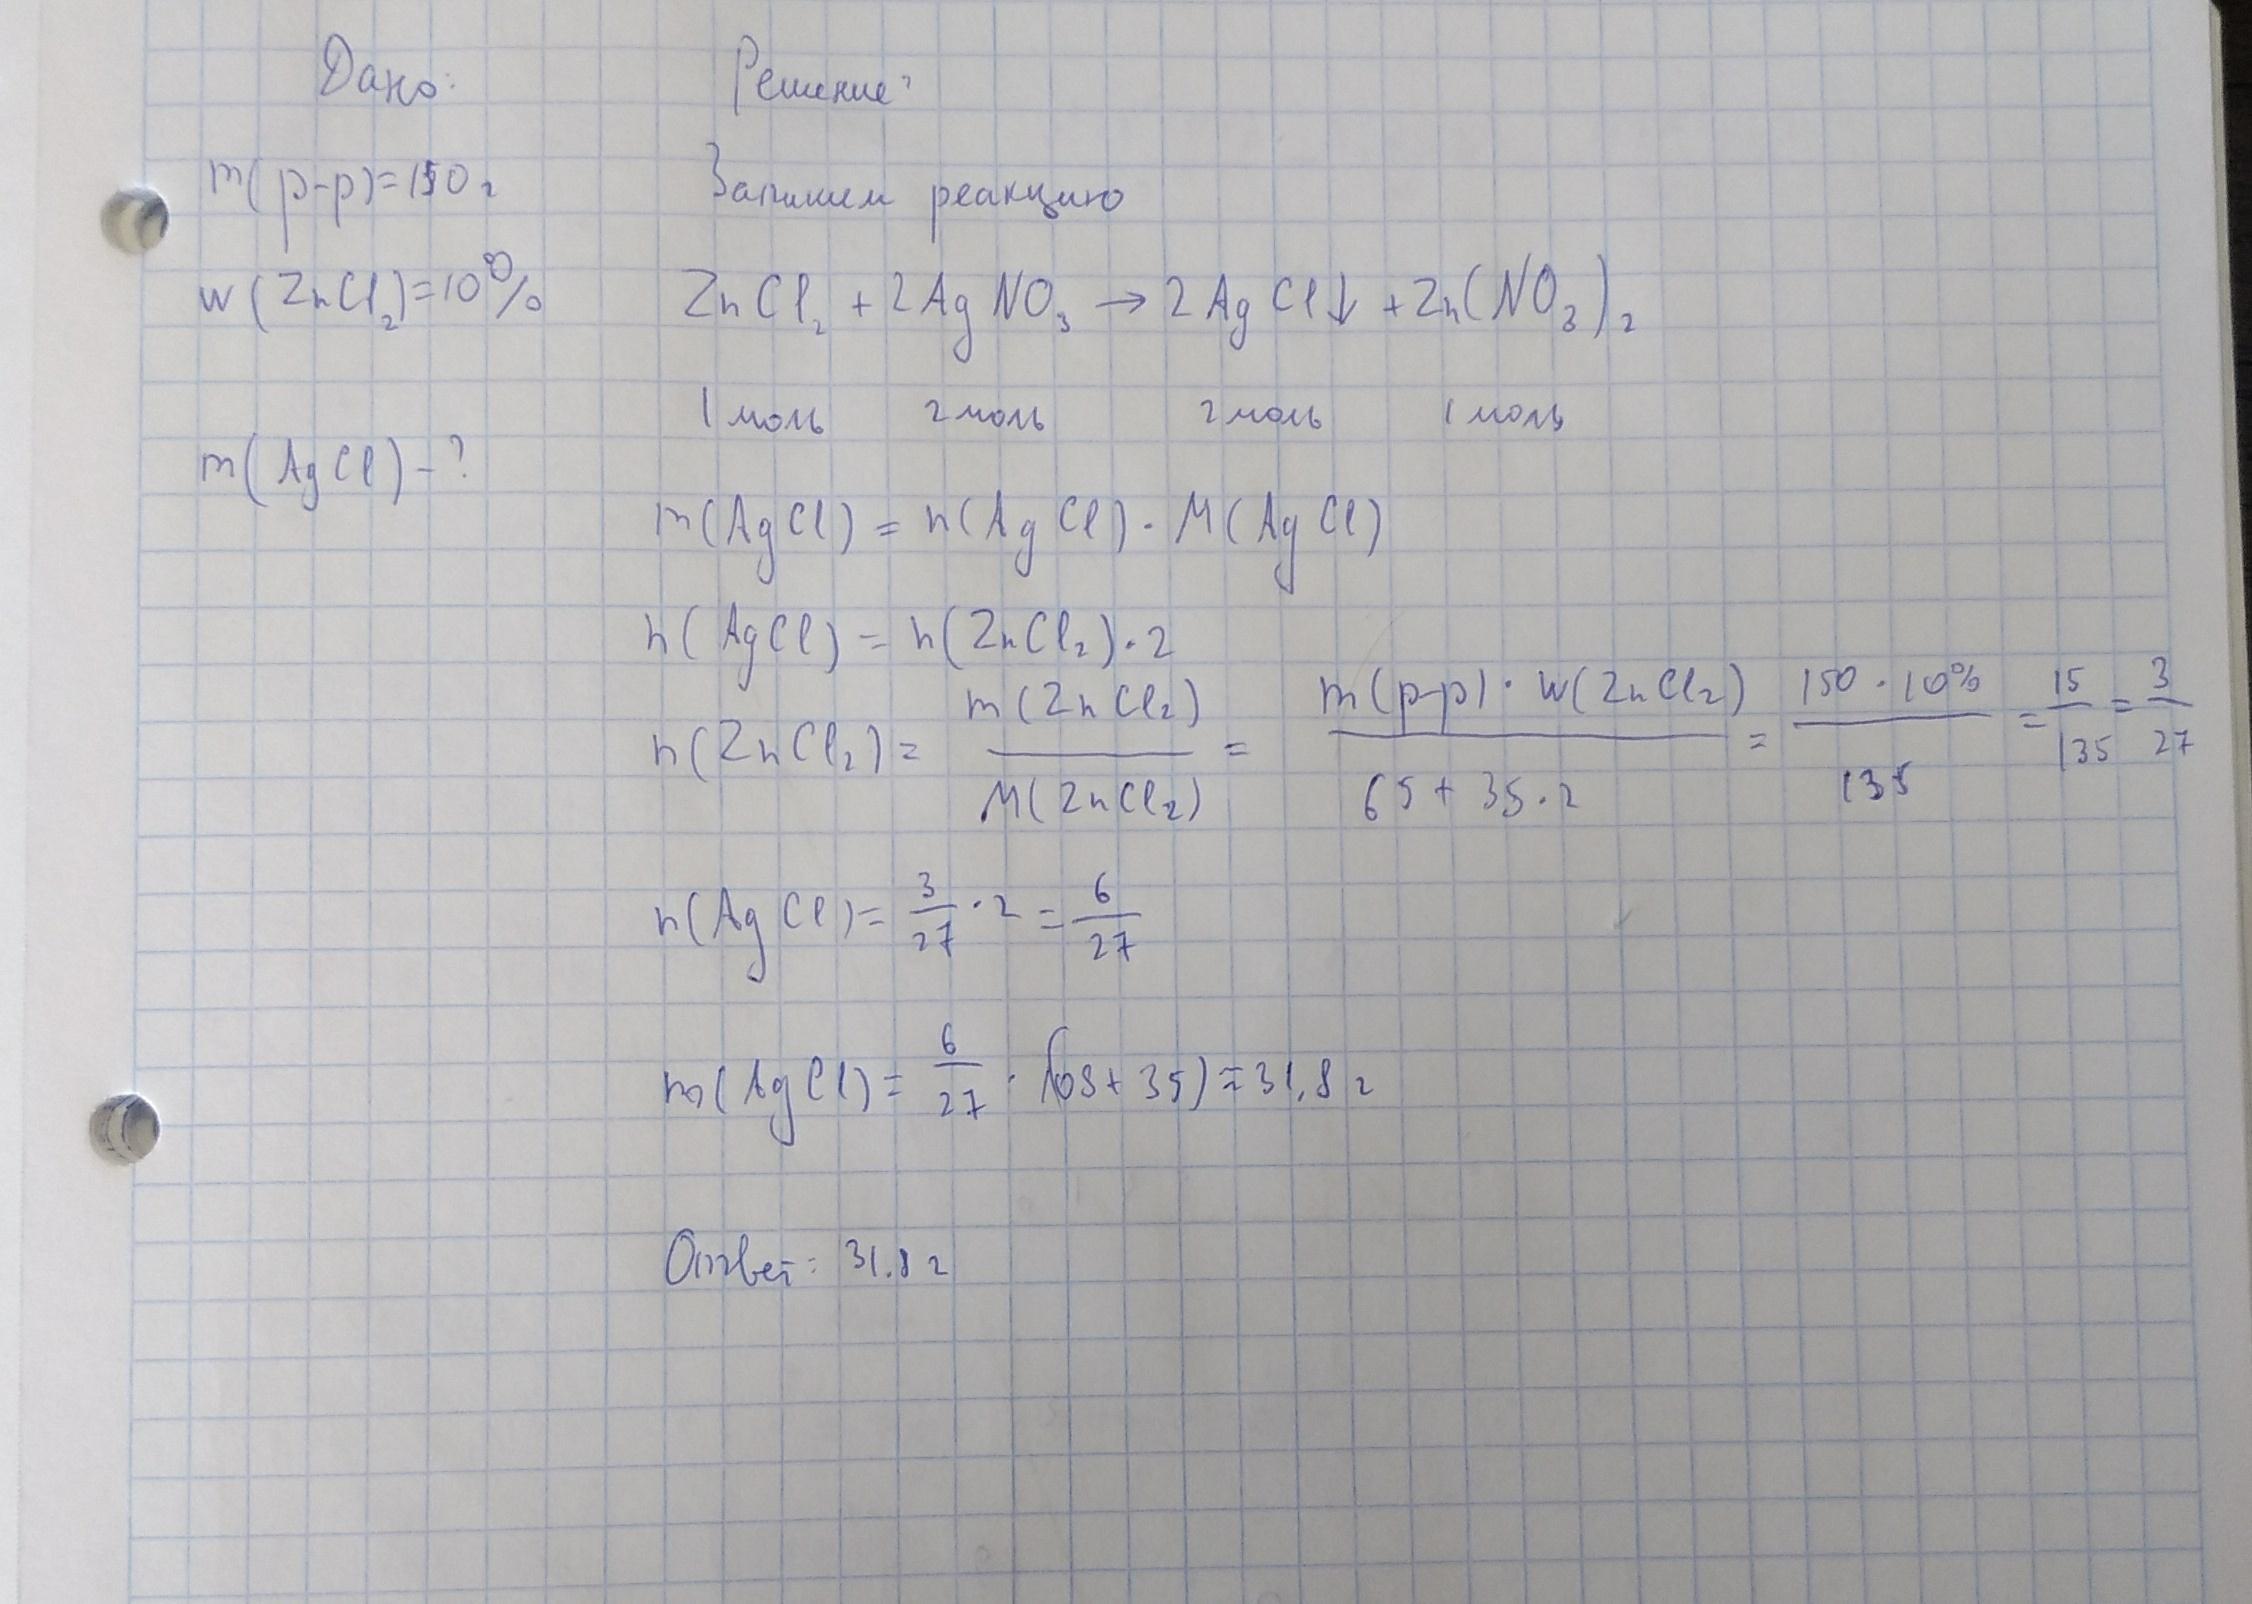 Дано: Решение:
m(р-р)=150г Запишем реакцию
w(ZnCl₂)=10% ZnCl₂ + 2AgNO₃ → 2AgCl↓ + Zn(NO₃)₂
1 моль 2 моль 2 моль 1 моль
m(AgCl)-?
m(AgCl) = n(AgCl) · M(AgCl)
n(AgCl) = n(ZnCl₂) · 2
n(ZnCl₂) = m(ZnCl₂)/M(ZnCl₂) = m(р-р) · w(ZnCl₂)/65+35·2 = 150·10%/135 = 15/135 = 3/27
n(AgCl) = 3/27 · 2 = 6/27
m(AgCl) = 6/27 · (108+35) = 31,8 г
Ответ: 31,8 г